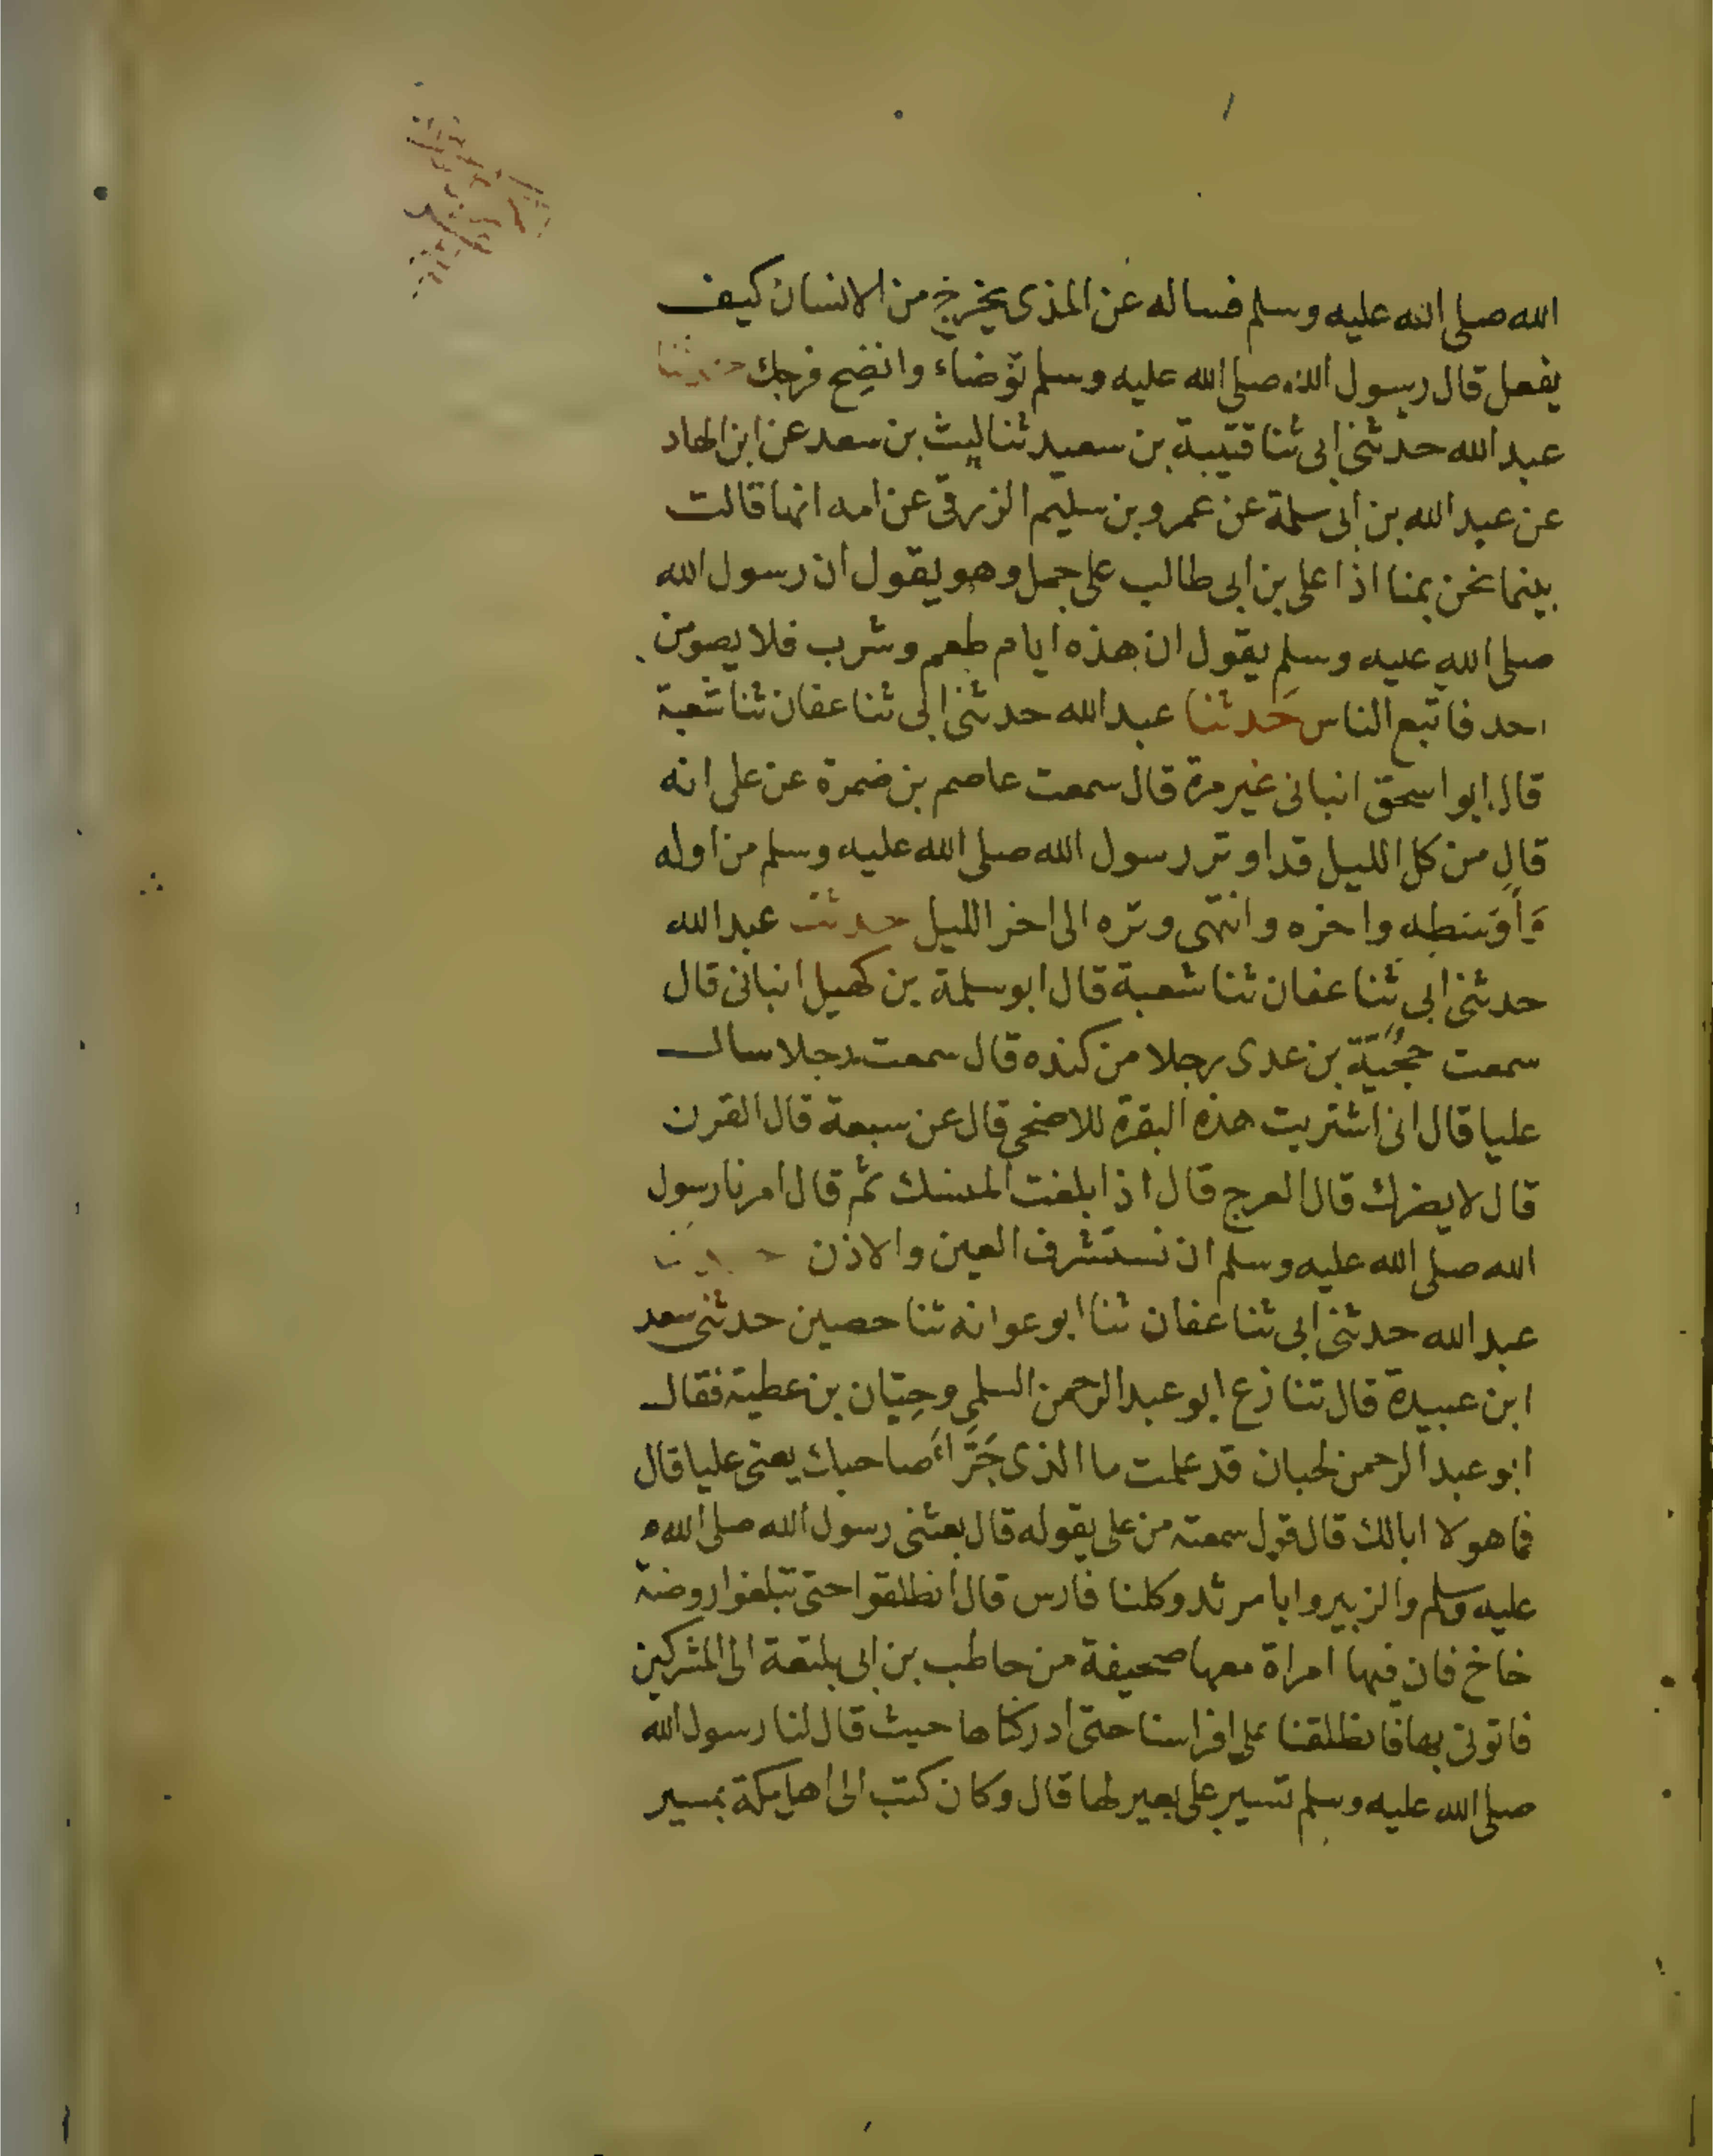 الله صلى الله عليه وسلم فساله عن المذى يخرج من الانسان كيف
يفعل قال رسول الله صلى الله عليه وسلم توضاء وانضِح فرجك حدثنا
عبد الله حدثنى ابى ثنا قتيبة بن سعيد ثنا ليث بن سعد عن ابن الهاد
عن عبد الله بن ابى سلمة عن عمرو بن سليم الزرقى عن امه انها قالت
بينما نحن بمنا اذا على بن ابى طالب على جمل وهو يقول ان رسول الله
صلى الله عليه وسلم يقول ان هذه ايام طعم وشرب فلا يصومن
احد فاتبع الناس حَدثنا عبد الله حدثنى ابى ثنا عفان ثنا شعبة
قال ابو اسحق انبانى غير مرة قال سمعت عاصم بن ضمرة عن على انه
قال من كل الليل قد اوتر رسول الله صلى الله عليه وسلم من اوله
وَأَوْسَطِه واخره وانتهى وتره الى اخر الليل حدثنا عبد الله
حدثنى ابى ثنا عفان ثنا شعبة قال ابو سلمة بن كهيل انبانى قال
سمعت حُجَيَّة بن عدى رجلا من كنده قال سمعت رجلا سال
عليا قال انى اشتريت هذه البقرة للاضحى قال عن سبعة قال القرن
قال لا يضرك قال العرج قال اذا بلغت المنسك ثم قال امرنا رسول
الله صلى الله عليه وسلم ان نستشرف العين والاذن حدثنا
عبد الله حدثنى ابى ثنا عفان ثنا ابو عوانه ثنا حصين حدثنى سعد
ابن عبيدة قال تنازع ابو عبد الرحمن السلمى وحِبّان بن عطية فقال
ابو عبد الرحمن لحبان قد علمت ما الذى جَرَّأَ صاحبك يعنى عليا قال
فما هو لا ابالك قال قول سمعته من على يقوله قال بعثنى رسول الله صلى الله
عليه وسلم والزبير وابا مرثد وكلنا فارس قال انطلقوا حتى تبلغوا روضة
خاخ فان فيها امراة معها صحيفة من حاطب بن ابى بلتعة الى المشركين
فاتونى بها فانطلقنا على افراسنا حتى ادركناها حيث قال لنا رسول الله
صلى الله عليه وسلم تسير على بعير لها قال وكان كتب الى اهل مكة بمسير